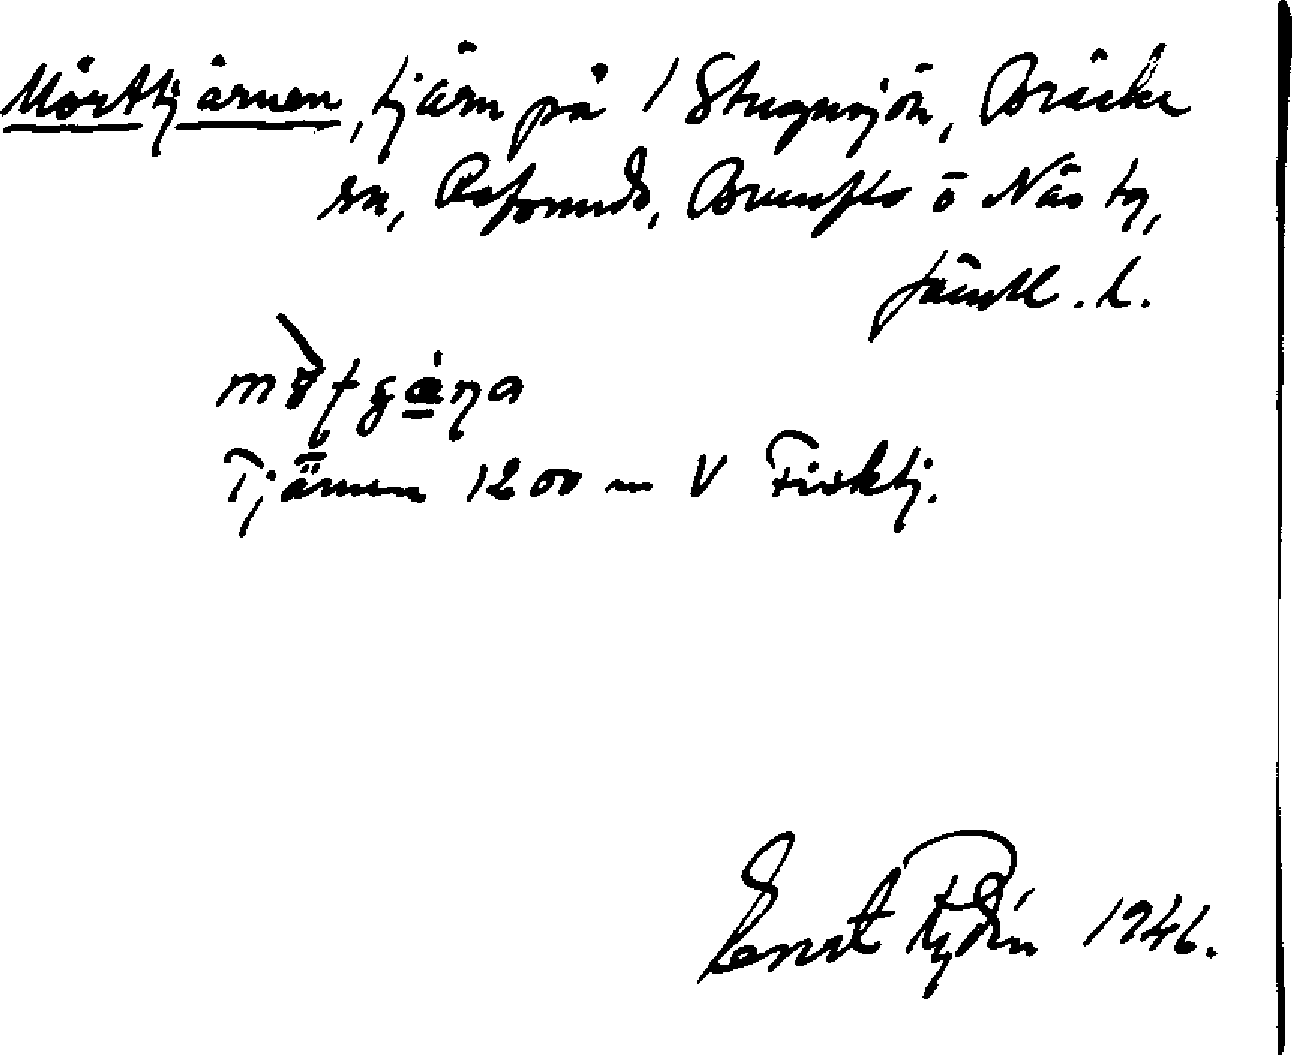 Mörttjärnen, tjärn på 1 Stugusjön, Bräcke
sn, Refsunds, Brunflo o Näs tg,
Jämtl. l.
Tjärnen 1200 m V Fisktj.
Ernst Rydén 1946.